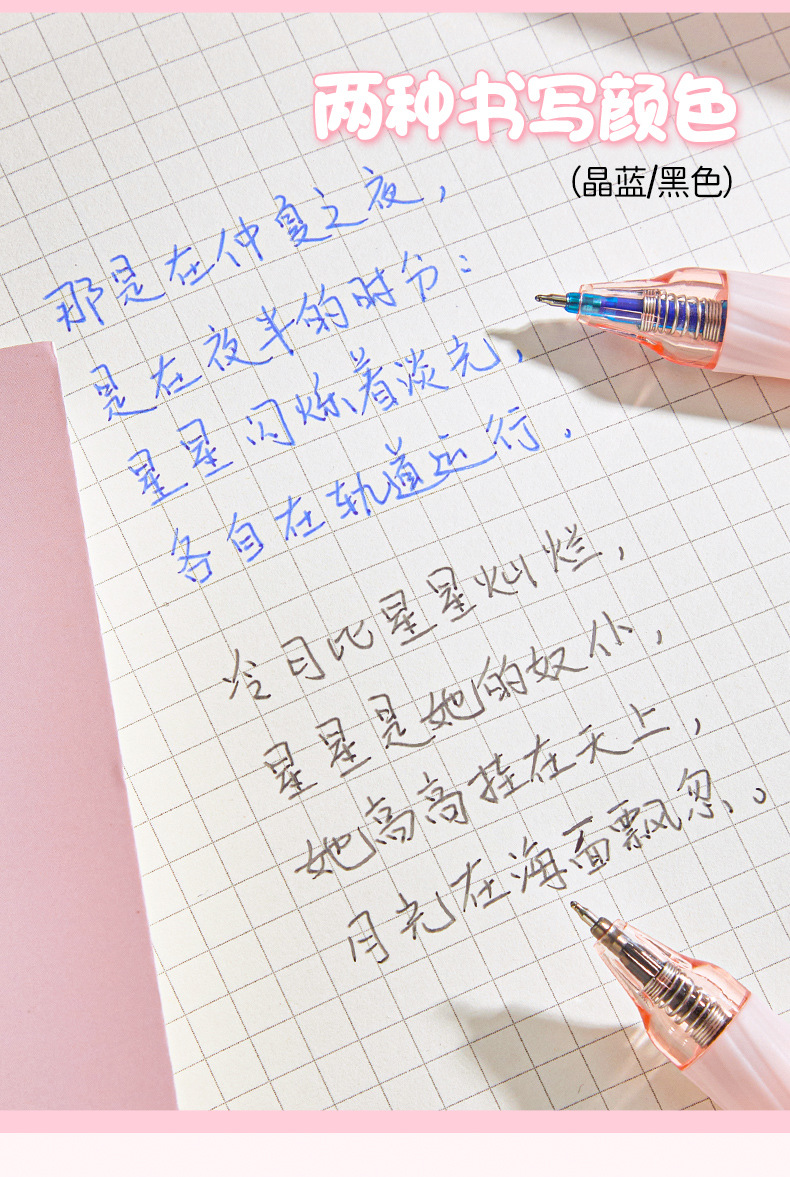 两种书写颜色
(晶蓝/黑色)
那是在仲夏之夜，
是在夜半的时分：
星星闪烁着淡光，
各自在轨道运行。
冷月比星星灿烂，
星星是她的奴仆，
她高高挂在天上，
月光在海面飘忽。